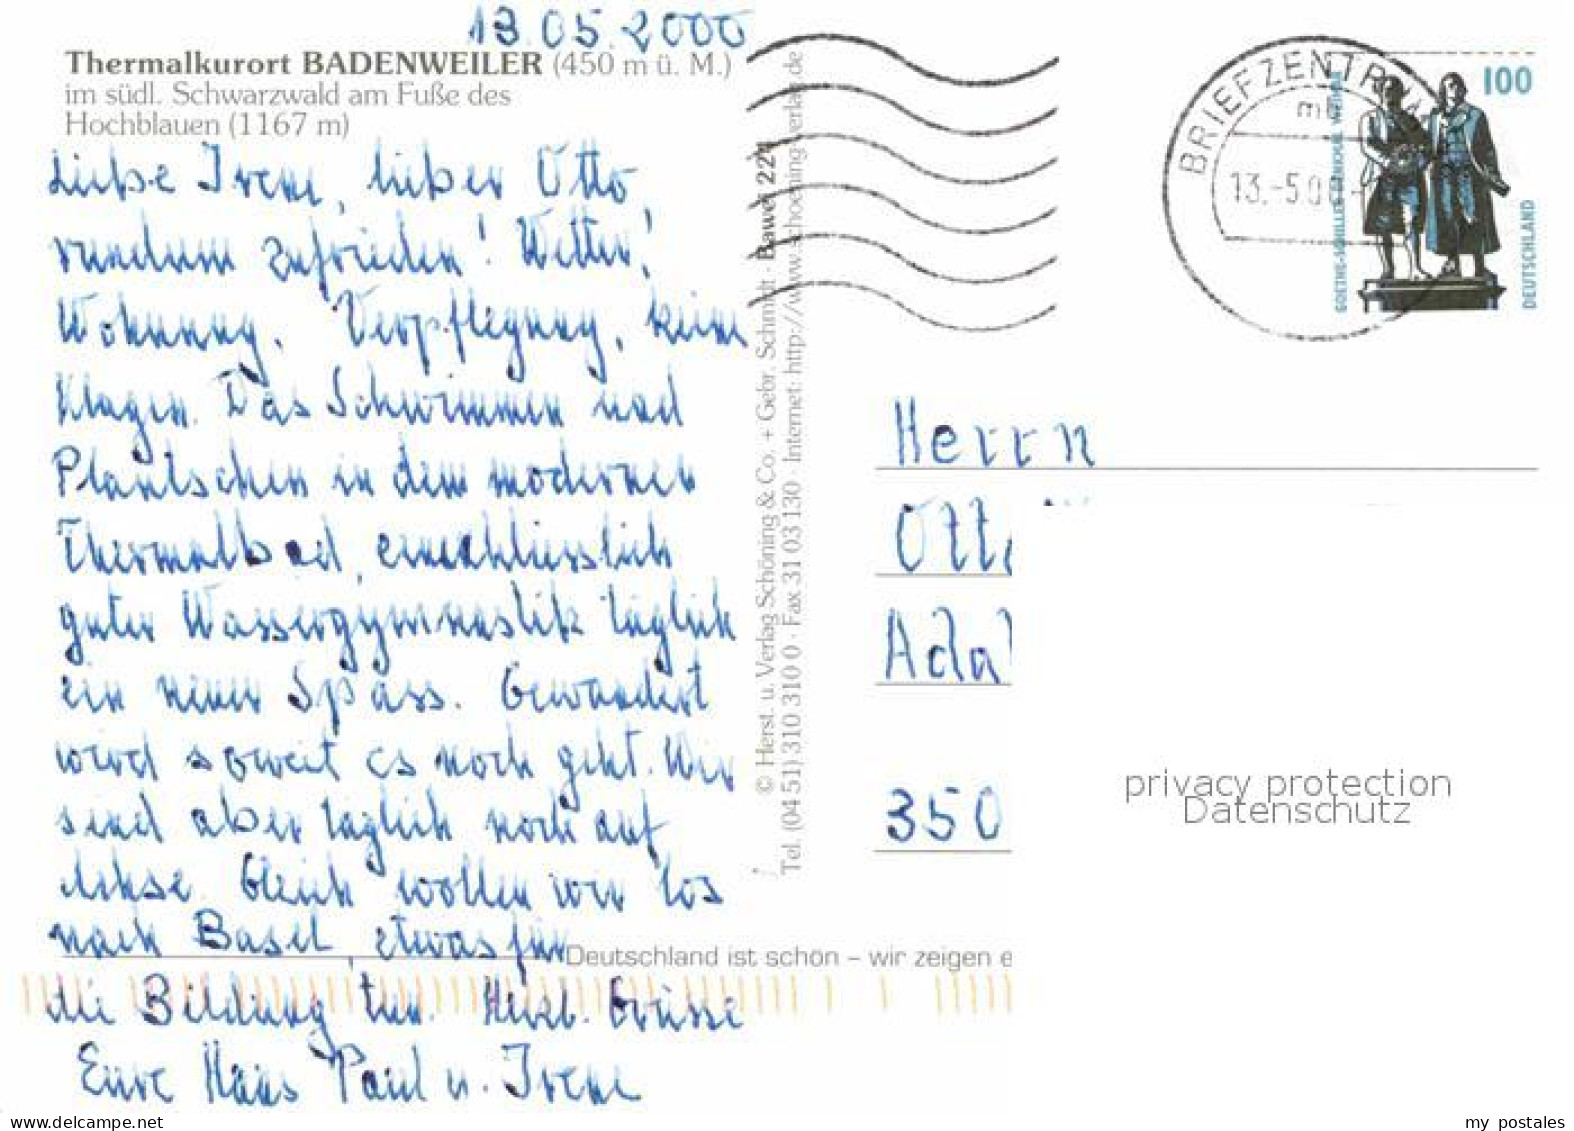 13.05.2000
Thermalkurort BADENWEILER (450 m ü. M.)
im südl. Schwarzwald am Fuße des
Hochblauen (1167 m)
Liebe Irene, lieber Otto,
rundum zufrieden! Wetter,
Wohnung, Verpflegung, keine
Klagen. Das Schwimmen und
Plantschen in dem modernen
Thermalbad, einschliesslich
guter Wassergymnastik täglich
ein neuer Spass. Gewandert
wird soweit es noch geht. Wir
sind aber täglich noch auf
Achse. Gleich wollen wir los
nach Basel, etwas für
die Bildung tun. Herzl. Grüsse
Eure Paul u. Irene
© Herst. u. Verlag Schöning & Co. + Gebr. Schmidt · Bawei 22
Tel. (04 51) 310 310 0 · Fax 31 03 130 · Internet: http://www.schoening-verlag.de
BRIEFZENTRUM
13.-5.0
100
GOETHE-SCHILLER-DENKMAL WEIMAR
DEUTSCHLAND
Herrn
Ott
Ada
350
privacy protection
Datenschutz
Deutschland ist schön – wir zeigen e
www.delcampe.net
my postales